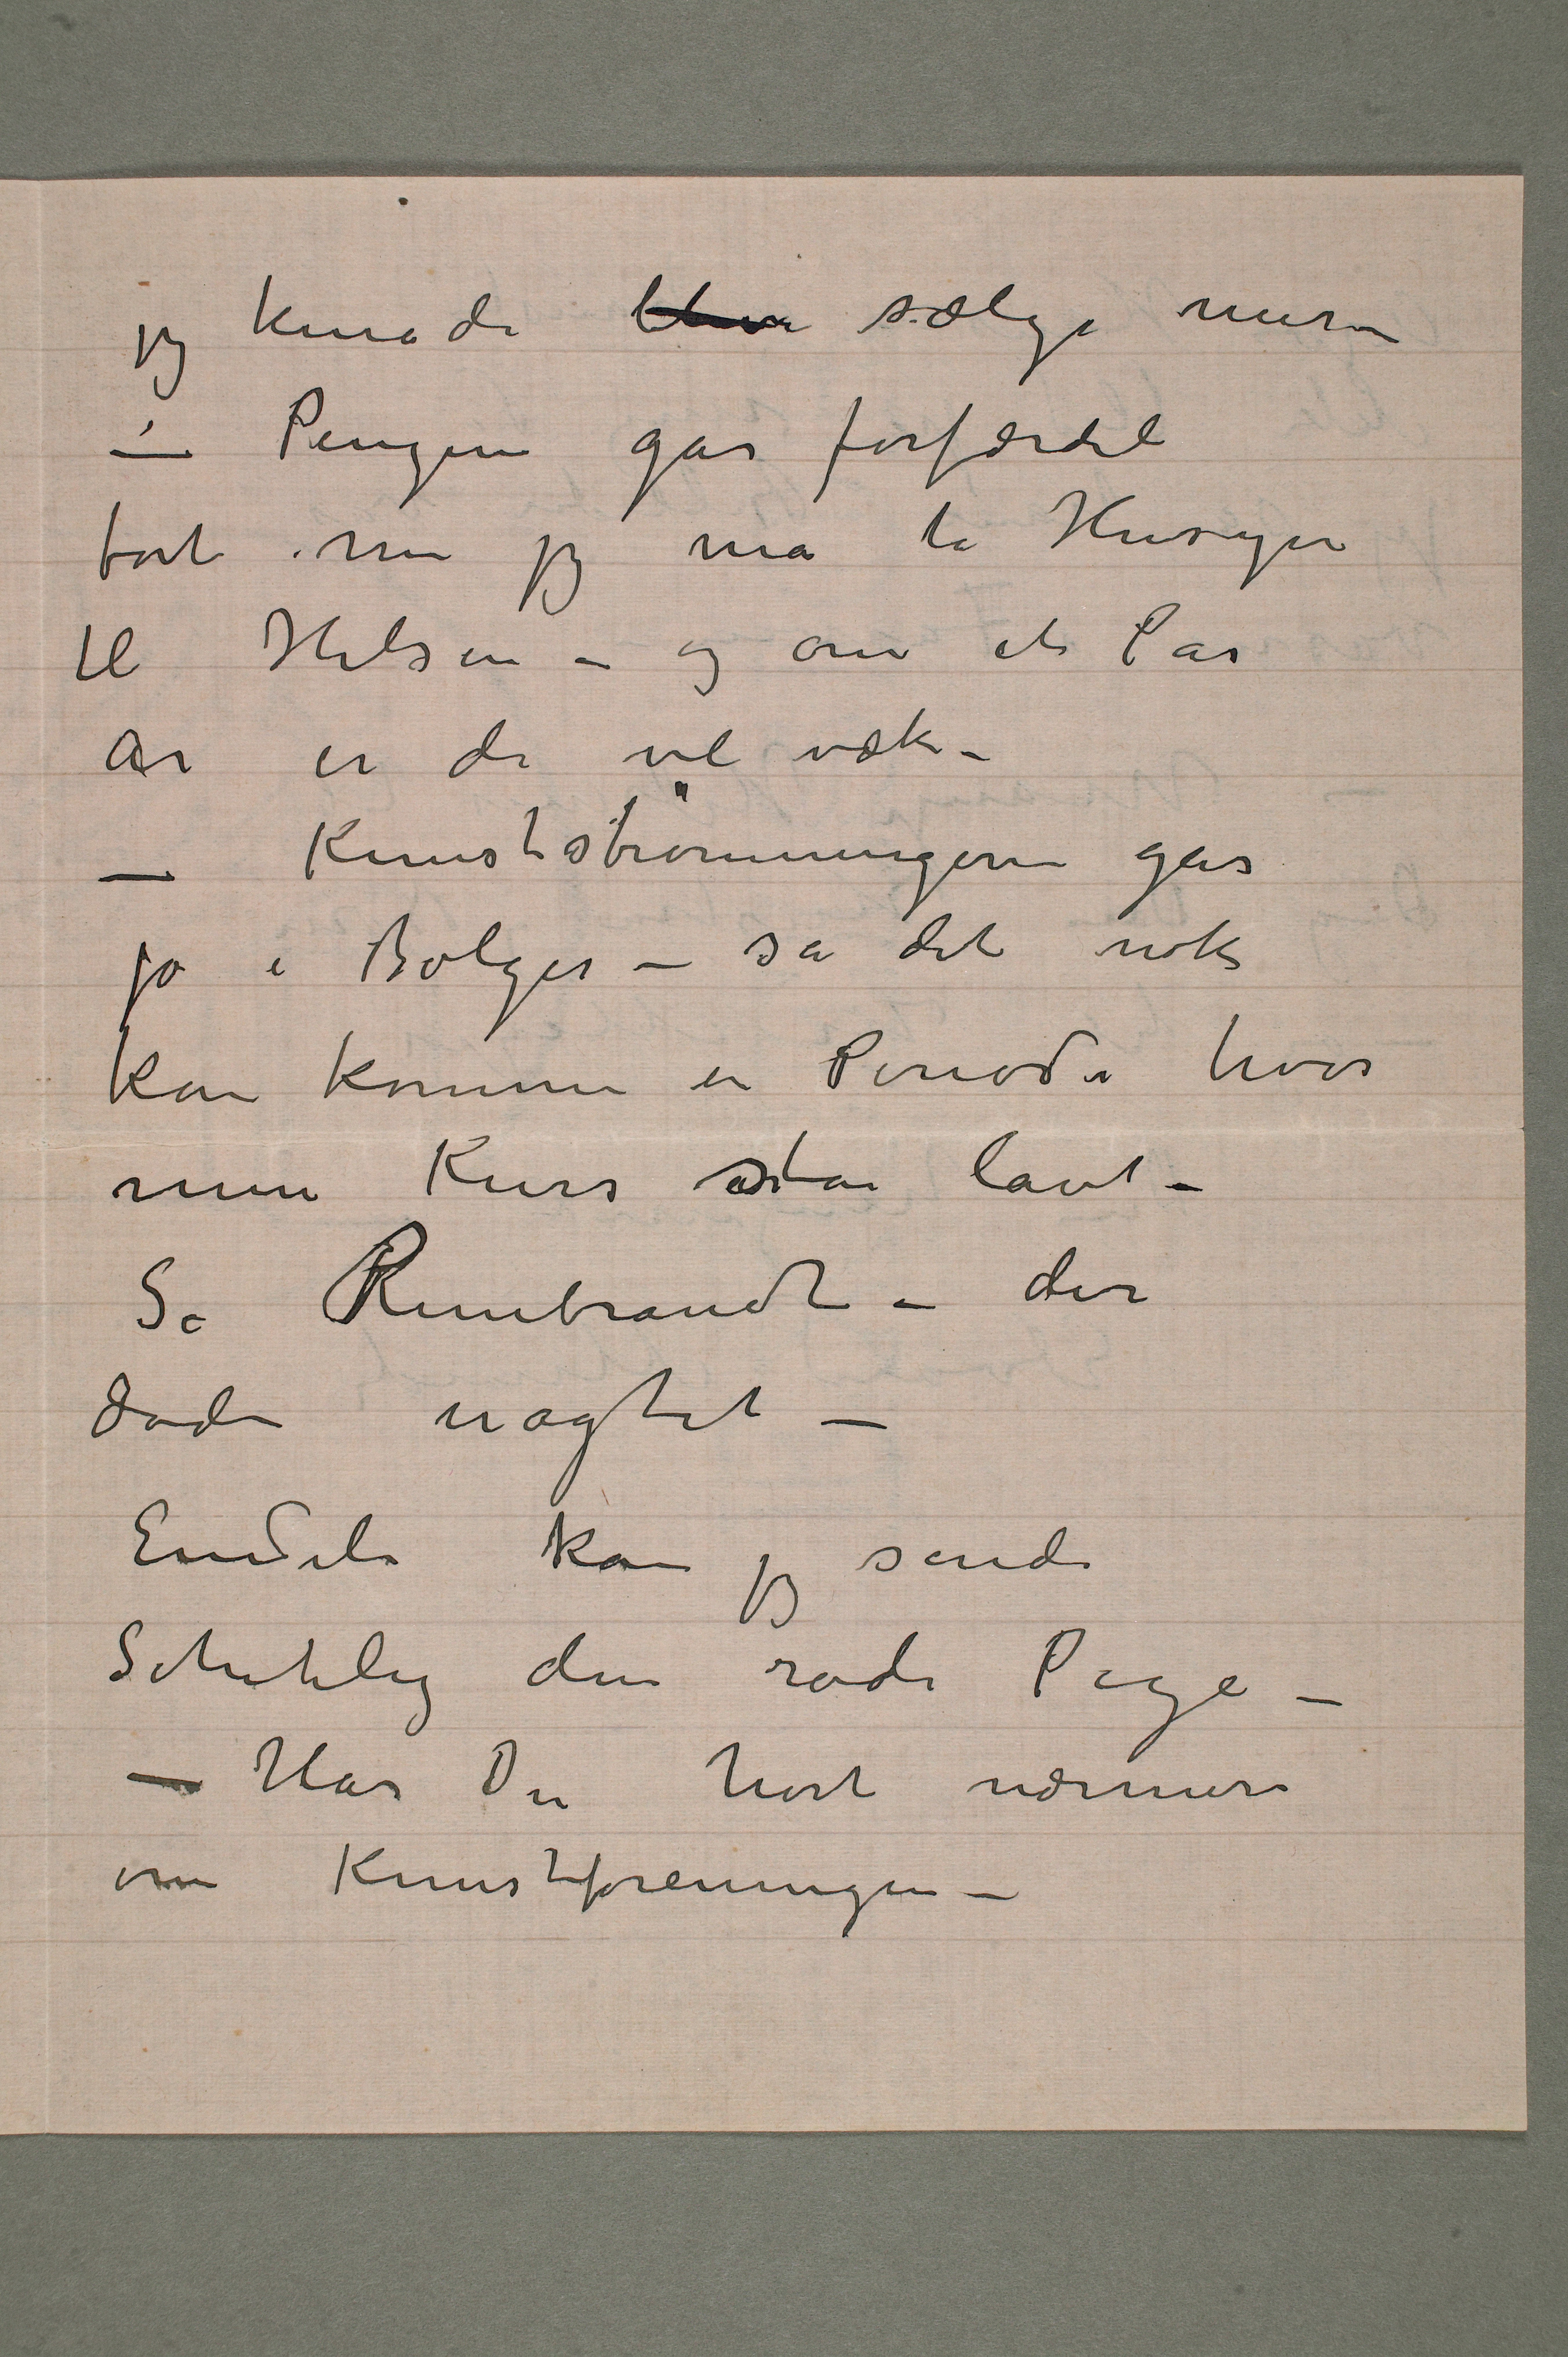 jeg kunde sælge mere
– Pengene går forfærdel
fort nu jeg må ta Hensyn
til Helsen – og om et Par
År er de vel væk –
– Kunstströmningerne går
jo i Bolger – så det nok
kan komme en Periode hvor
min Kurs står lavt –
Se Rembrandt – der
døde uagtet –
Endelig kan jeg sende
Schiefler den røde Pige –
– Har Du hørt nærmere
om Kunstforeningen –